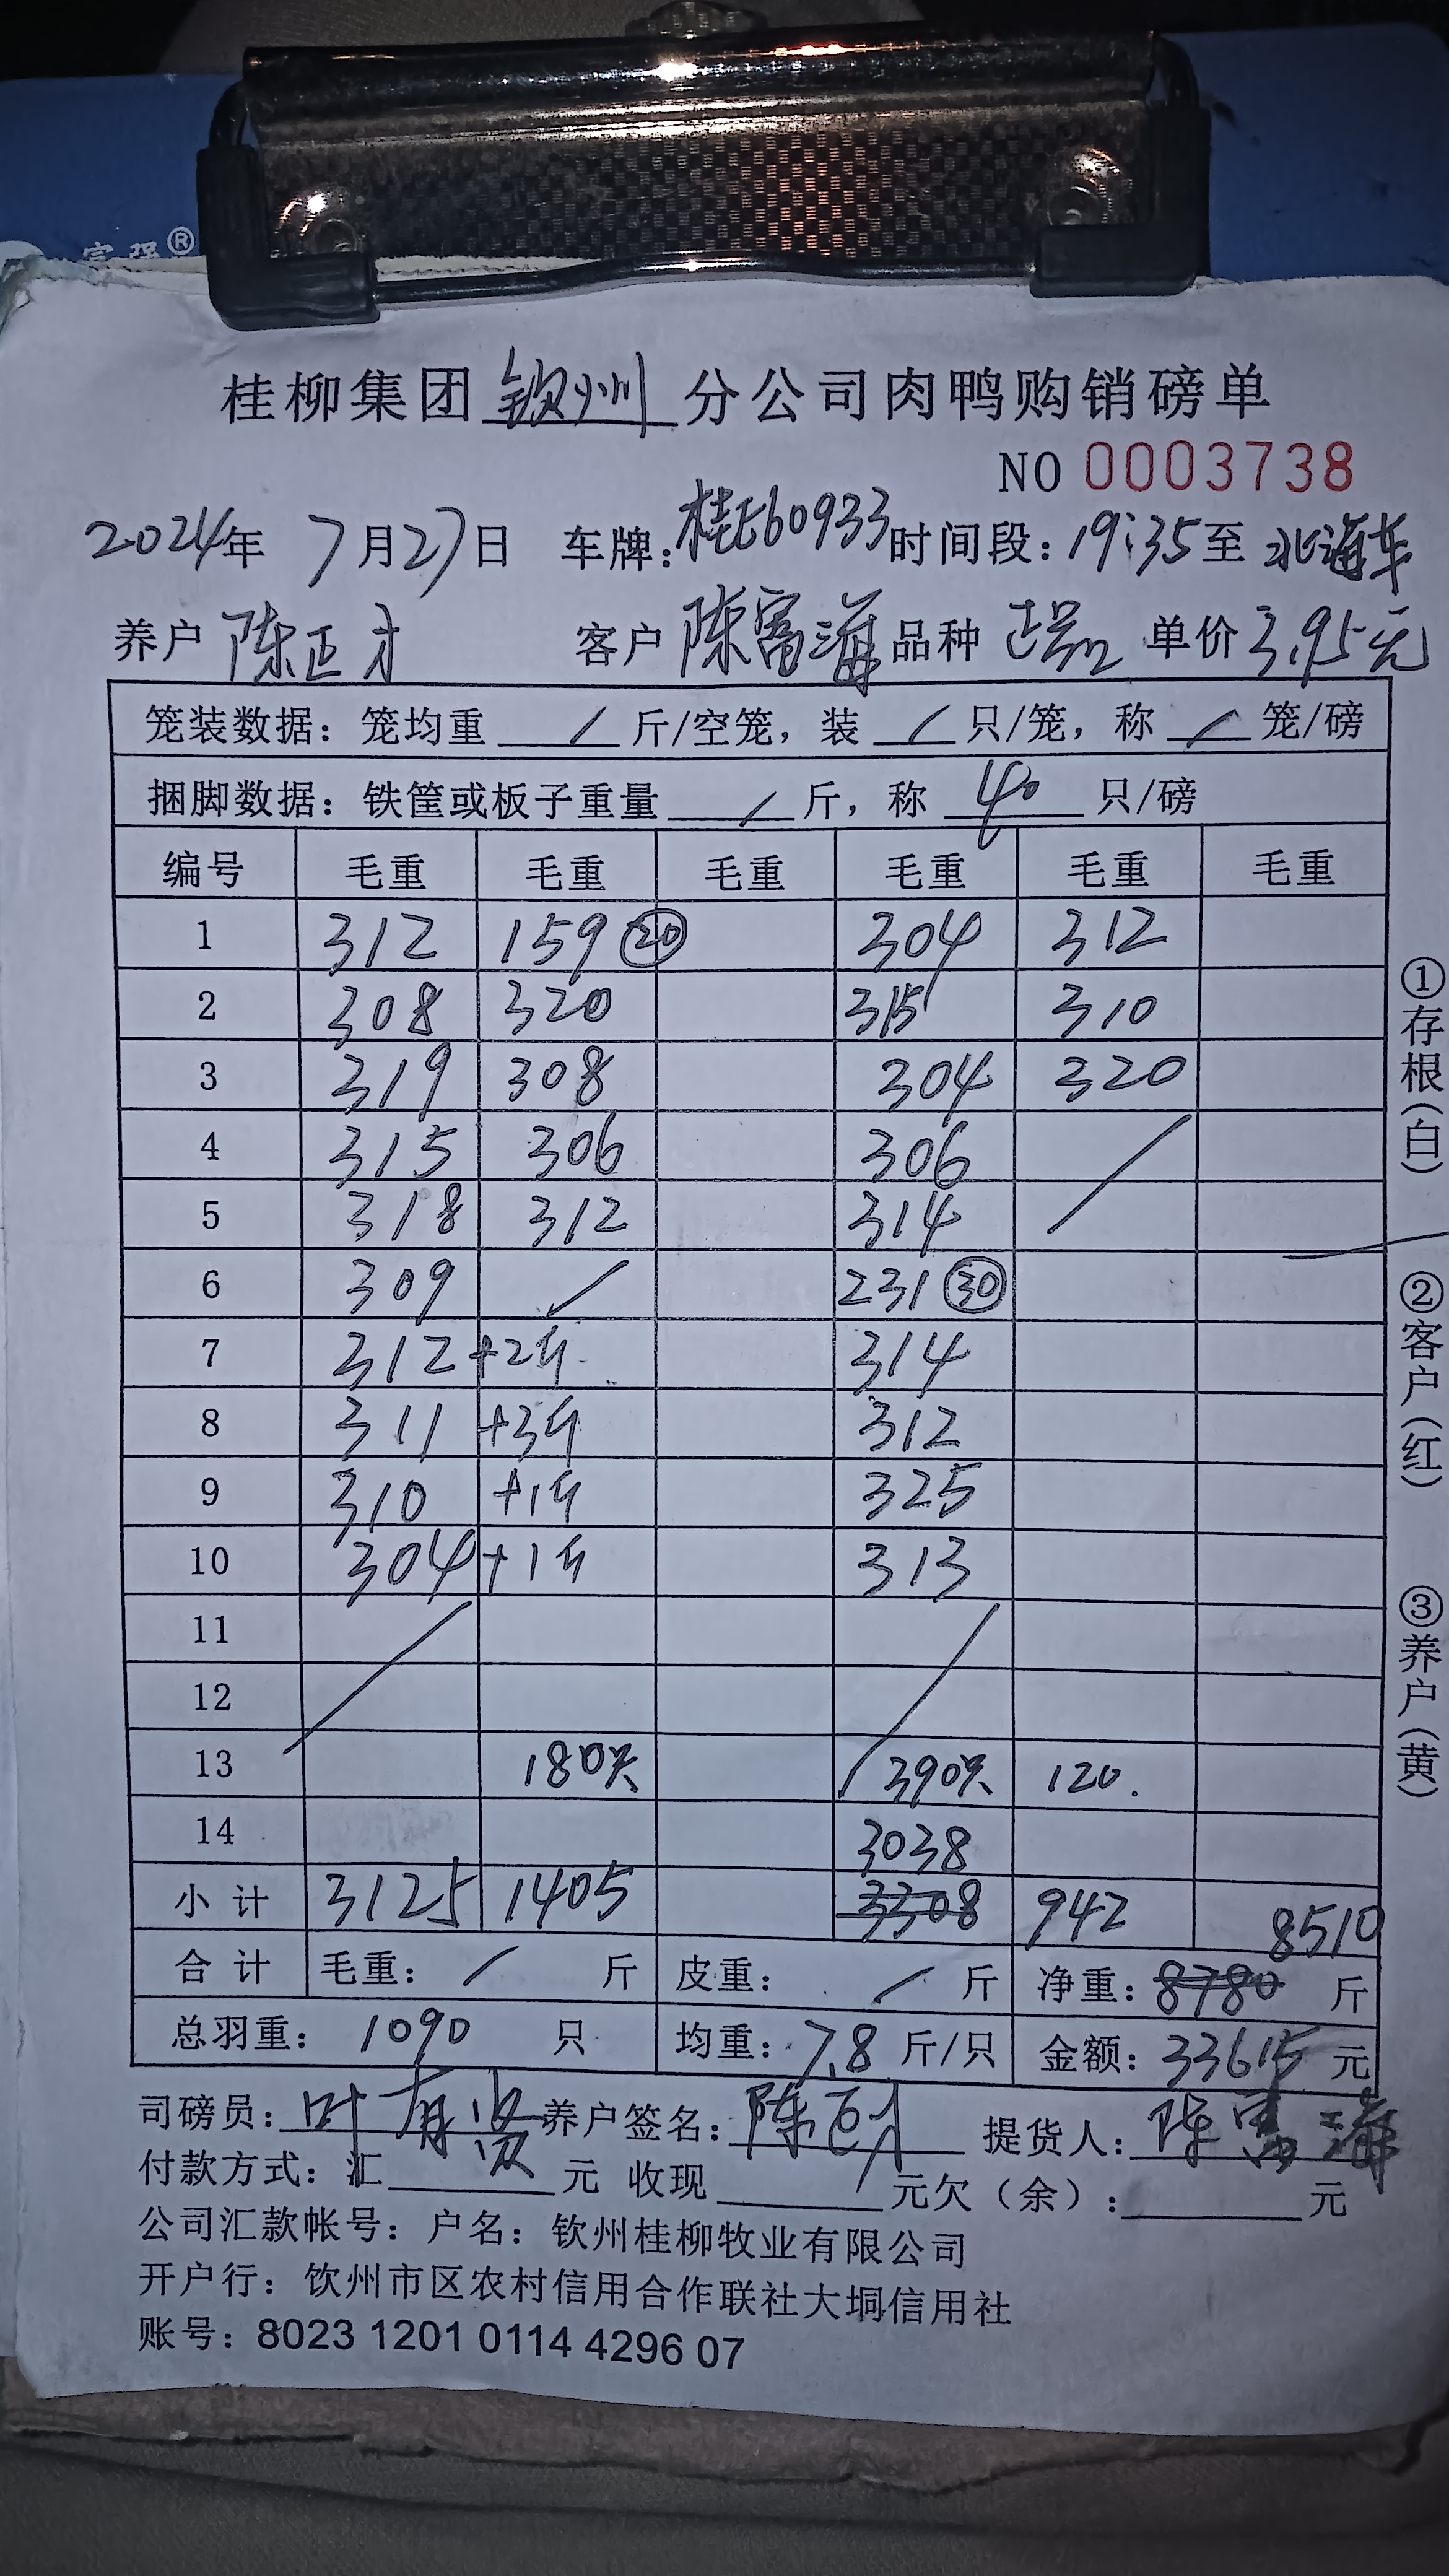 富强®
桂柳集团 钦州 分公司肉鸭购销磅单
NO 0003738
2024年 7月27日 车牌:桂E60933 时间段:19:35至 北海车
养户 陈正才 客户 陈富海 品种 单价 3.95元
笼装数据: 笼均重 / 斤/空笼, 装 / 只/笼, 称 / 笼/磅
捆脚数据: 铁筐或板子重量 / 斤, 称 40 只/磅
编号 毛重 毛重 毛重 毛重 毛重 毛重
1 312 159 ⑳ 304 312
2 308 320 315 310
3 319 308 304 320
4 315 306 306 /
5 318 312 314
6 309 / 231 ㉚
7 312 +2斤 314
8 311 +3斤 312
9 310 +1斤 325
10 304 +1斤 313
11 / /
12
13 180只 390只 120.
14 3038
小计 3125 1405 3308 942 8510
合计 毛重: / 斤 皮重: / 斤 净重: 8780 斤
总羽重: 1090 只 均重: 7.8 斤/只 金额: 33615 元
司磅员: 叶有贤 养户签名: 陈正才 提货人: 陈富海
付款方式: 汇 元 收现 元欠(余): 元
公司汇款帐号: 户名: 钦州桂柳牧业有限公司
开户行: 钦州市区农村信用合作联社大垌信用社
账号: 8023 1201 0114 4296 07
①存根(白)
②客户(红)
③养户(黄)